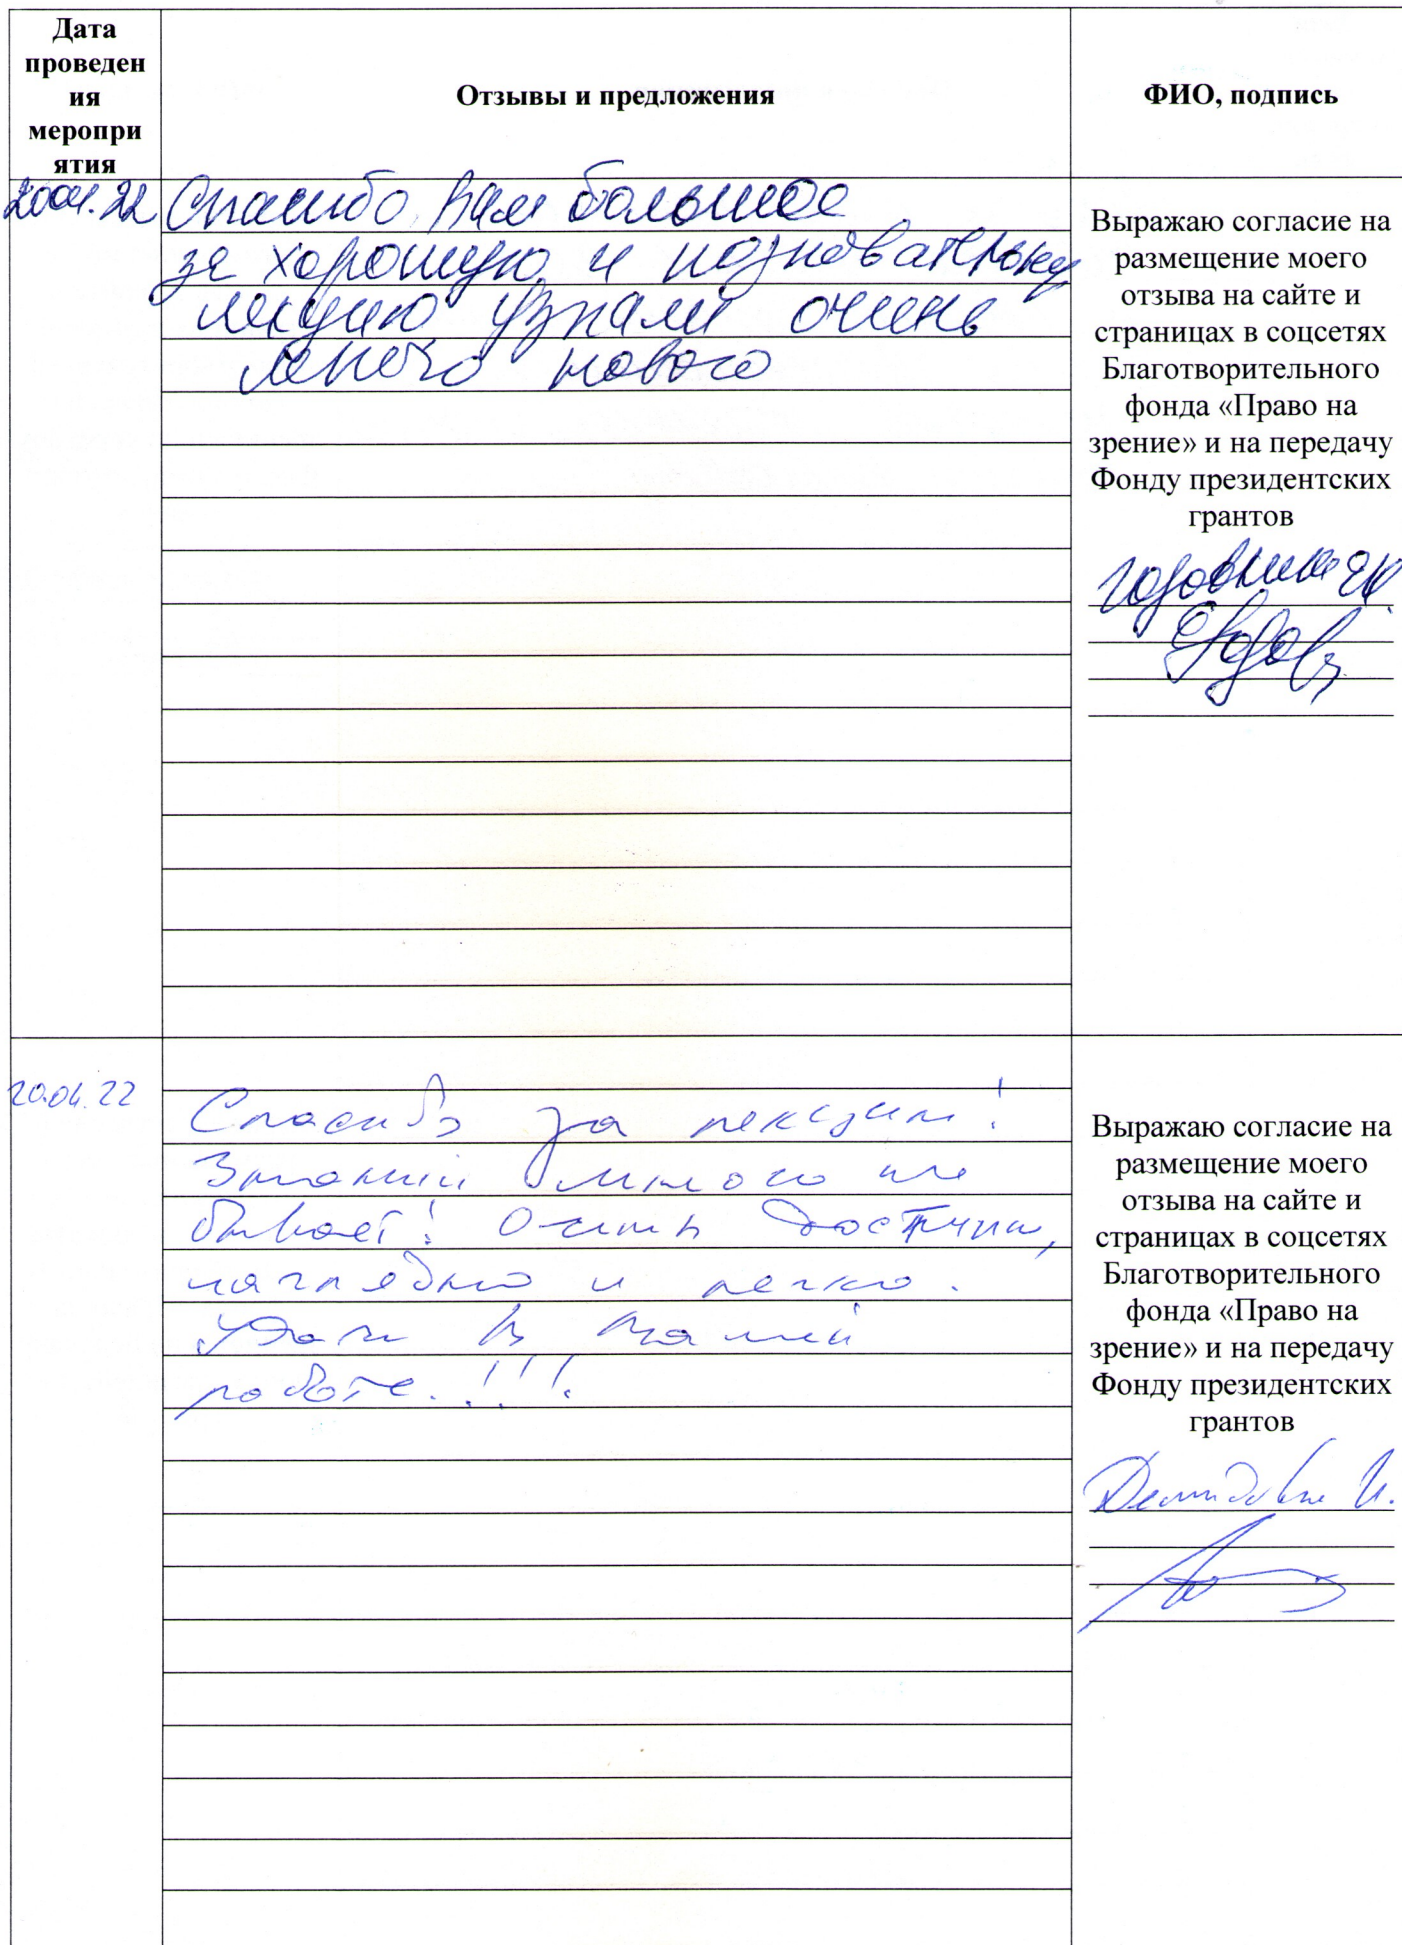 Дата
проведен
ия
меропри
ятия
Отзывы и предложения
ФИО, подпись
20.04.22
Спасибо Вам большое
за хорошую и познавательную
лекцию узнали очень
много нового
Выражаю согласие на
размещение моего
отзыва на сайте и
страницах в соцсетях
Благотворительного
фонда «Право на
зрение» и на передачу
Фонду президентских
грантов
20.04.22
Спасибо за лекции!
Знаний много не
бывает! Очень доступно,
наглядно и легко.
Удачи в Вашей
работе.!!!
Выражаю согласие на
размещение моего
отзыва на сайте и
страницах в соцсетях
Благотворительного
фонда «Право на
зрение» и на передачу
Фонду президентских
грантов
И.